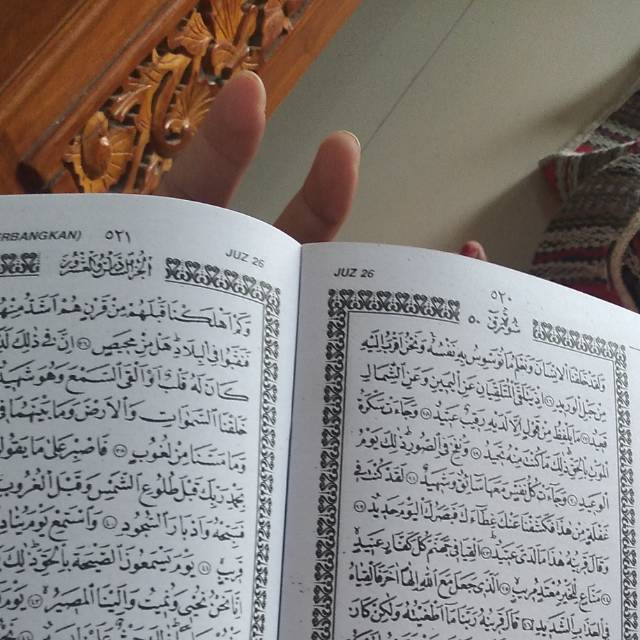 JUZ 26
٥٢٠
سورة ق ٥٠
ولقد خلقنا الإنسان ونعلم ما توسوس به نفسه ونحن أقرب إليه
من حبل الوريد ١٦ إذ يتلقى المتلقيان عن اليمين وعن الشمال
قعيد ١٧ ما يلفظ من قول إلا لديه رقيب عتيد ١٨ وجاءت سكرة
الموت بالحق ذلك ما كنت منه تحيد ١٩ ونفخ في الصور ذلك يوم
الوعيد ٢٠ وجاءت كل نفس معها سائق وشهيد ٢١ لقد كنت في
غفلة من هذا فكشفنا عنك غطاءك فبصرك اليوم حديد ٢٢
وقال قرينه هذا ما لدي عتيد ٢٣ ألقيا في جهنم كل كفار عنيد ٢٤
مناع للخير معتد مريب ٢٥ الذي جعل مع الله إلها آخر فألقياه
في العذاب الشديد ٢٦ قال قرينه ربنا ما أطغيته ولكن كان
ERBANGKAN)
٥٢١
JUZ 26
الجزء السادس والعشرون
وكم أهلكنا قبلهم من قرن هم أشد منهم
فنقبوا في البلاد هل من محيص ٣٦ إن في ذلك
كان له قلب أو ألقى السمع وهو شهيد
خلقنا السموات والأرض وما بينهما في
وما مسنا من لغوب ٣٨ فاصبر على ما يقولو
بحمد ربك قبل طلوع الشمس وقبل الغروب
فسبحه وأدبار السجود ٤٠ واستمع يوم يناد
قريب ٤١ يوم يسمعون الصيحة بالحق ذلك
إنا نحن نحيي ونميت وإلينا المصير ٤٣ يوم